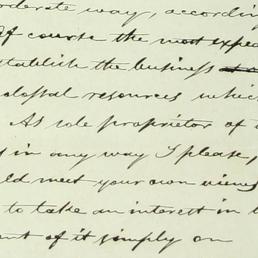 oderate way, according
Of course the most expe
stablish the business
olossal resources which
As sole proprietor of
in any way I please,
ld meet your own views
to take an interest in t
nt of it simply on